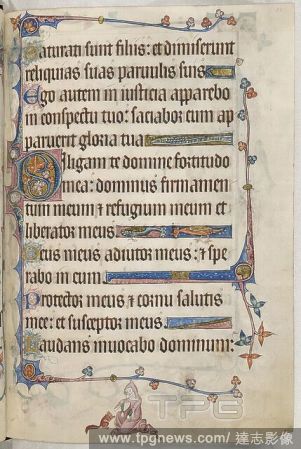 Saturati sunt filiis: et dimiserunt
reliquias suas parvulis suis
Ego autem in iusticia apparebo
in conspectu tuo: saciabor cum ap
paruerit gloria tua
Diligam te domine fortitudo
mea: dominus firmamen
tum meum et refugium meum et
liberator meus
Deus meus adiutor meus: et spe
rabo in eum
Protector meus et cornu salutis
mee: et susceptor meus
Laudans invocabo dominum:
TPG
www.tpgnews.com / 達志影像